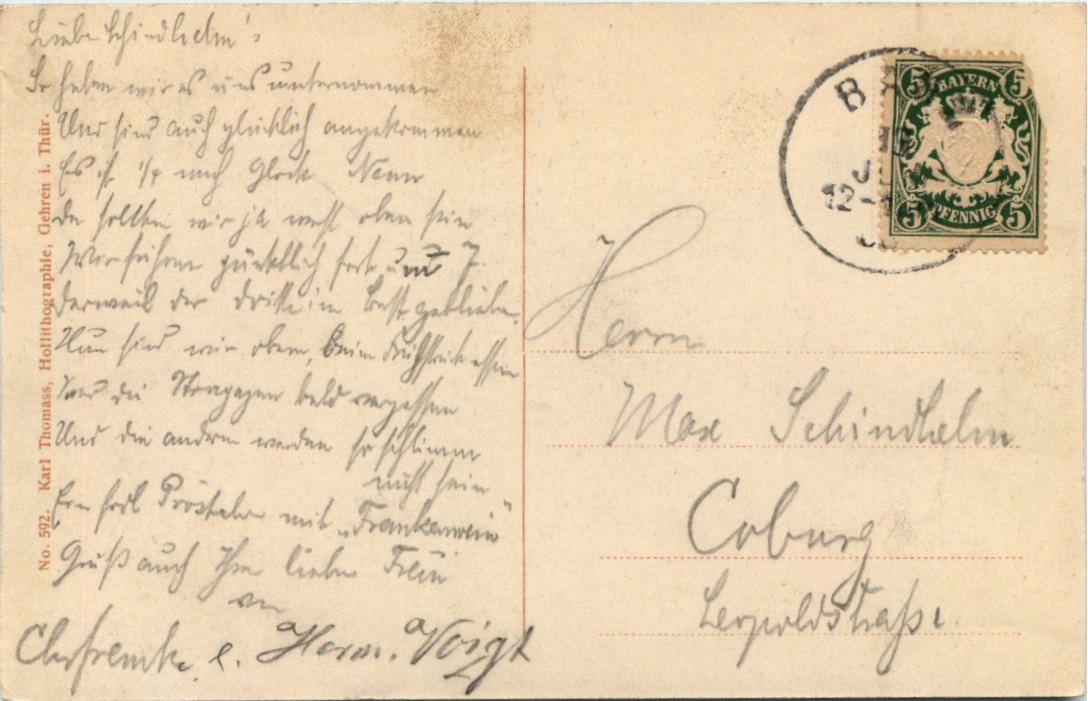 Liebe Schindhelm's
So haben wir es uns unternommen
Und sind auch glücklich angekommen
Es ist 1/4 nach Glock Neun
da sollten wir ja wohl oben sein
Wir fuhren pünktlich fort und
derweil der dritte im Bett geblieben.
Nun sind wir oben, beim Frühstück essen
sind die Strapazen bald vergessen
Und die andern werden so schlimm
nicht sein
Ein Prösterlein mit „Frankenwein"
Gruß auch Ihre liebe Frau
von
e. Herm. Voigt
No. 592. Karl Thomass, Hoflithographie, Gehren i. Thür.
BAYERN
5 5
5 PFENNIG 5
BA
12-1
Herrn
Max Schindhelm
Coburg
Leopoldstraße.